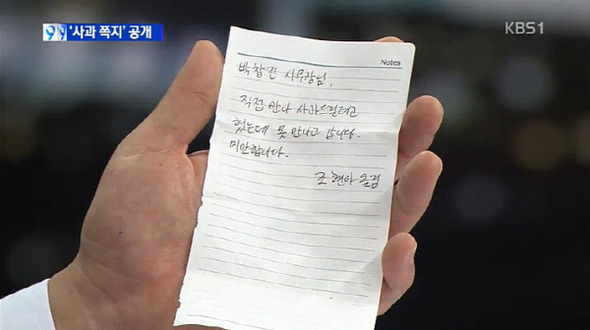 '사과 쪽지' 공개
KBS1
Notes
박창진 사무장님,
직접 만나 사과드릴려고
했는데 못 만나고 갑니다.
미안합니다.
조현아 올림